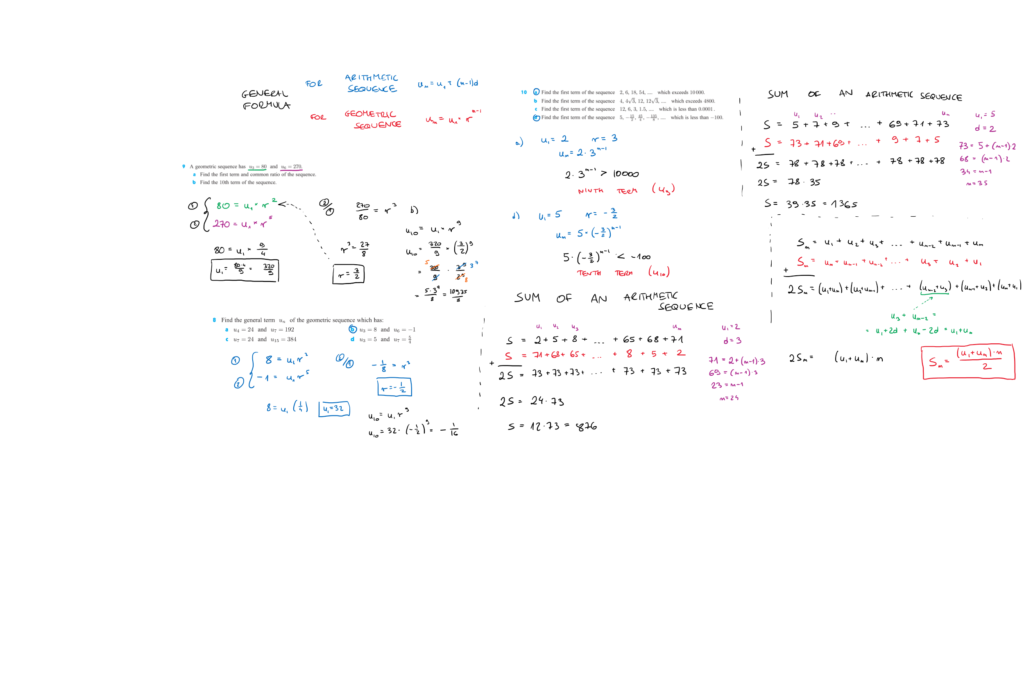 GENERAL FORMULA
FOR ARITHMETIC SEQUENCE u_n = u_1 + (n-1)d
FOR GEOMETRIC SEQUENCE u_n = u_1 · r^(n-1)
9 A geometric sequence has u_3 = 80 and u_6 = 270.
a Find the first term and common ratio of the sequence.
b Find the 10th term of the sequence.
80 = u_1 · r^2
270 = u_1 · r^5
80 = u_1 · 9/4
270/80 = r^3
r^3 = 27/8
r = 3/2
b)
u_10 = u_1 · r^9
8 Find the general term u_n of the geometric sequence which has:
a u_4 = 24 and u_7 = 192
b u_3 = 8 and u_6 = −1
c u_7 = 24 and u_15 = 384
d u_3 = 5 and u_7 = 5/4
8 = u_1 r^2
-1 = u_1 r^5
-1/8 = r^3
r = -1/2
8 = u_1 (1/4)
u_1 = 32
u_10 = u_1 r^9
u_10 = 32 · (-1/2)^9 = - 1/16
10 a Find the first term of the sequence 2, 6, 18, 54, .... which exceeds 10 000.
b Find the first term of the sequence 4, 4√3, 12, 12√3, .... which exceeds 4800.
c Find the first term of the sequence 12, 6, 3, 1.5, .... which is less than 0.0001.
a) u_1 = 2 r = 3
u_n = 2 · 3^(n-1)
2 · 3^(n-1) > 10000
NINTH TERM (u_9)
d) u_1 = 5 r = - 3/2
u_n = 5 · (-3/2)^(n-1)
5 · (-3/2)^(n-1) < -100
TENTH TERM (u_10)
SUM OF AN ARITHMETIC SEQUENCE
u_1 u_2 u_3 u_n
S = 2 + 5 + 8 + ... + 65 + 68 + 71
S = 71 + 68 + 65 + ... + 8 + 5 + 2
+
2S = 73 + 73 + 73 + ... + 73 + 73 + 73
2S = 24 · 73
S = 12 · 73 = 876
u_1 = 2
d = 3
71 = 2 + (n-1) · 3
69 = (n-1) · 3
23 = n-1
n = 24
SUM OF AN ARITHMETIC SEQUENCE
u_1 u_2 ... u_n
S = 5 + 7 + 9 + ... + 69 + 71 + 73
S = 73 + 71 + 69 + ... + 9 + 7 + 5
+
2S = 78 + 78 + 78 + ... + 78 + 78 + 78
2S = 78 · 35
S = 39 · 35 = 1365
u_1 = 5
d = 2
73 = 5 + (n-1) 2
68 = (n-1) · 2
34 = n-1
n = 35
S_n = u_1 + u_2 + u_3 + ... + u_n-2 + u_n-1 + u_n
S_n = u_n + u_n-1 + u_n-2 + ... + u_3 + u_2 + u_1
+
u_3 + u_n-2 =
= u_1 + 2d + u_n - 2d = u_1 + u_n
2S_n = (u_1 + u_n) · n
S_n = (u_1 + u_n) · n / 2